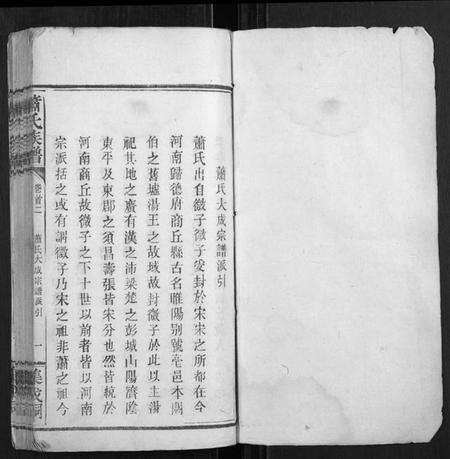 蕭氏大成宗譜派引
蕭氏出自微子微子受封於宋宋之所都在今
河南歸德府商丘縣古名睢陽別號亳邑本閼
伯之舊墟湯王之故域故封微子於此以主湯
祀其地之廣有漢之沛梁楚之彭城山陽濟陰
東平及東郡之須昌壽張皆宋分也然皆統於
河南商丘故微子之下十世以前者皆以河南
宗派括之或有謂微子乃宋之祖非蕭之祖今
蕭氏族譜
卷首二
蕭氏大成宗譜派引
一
集成祠